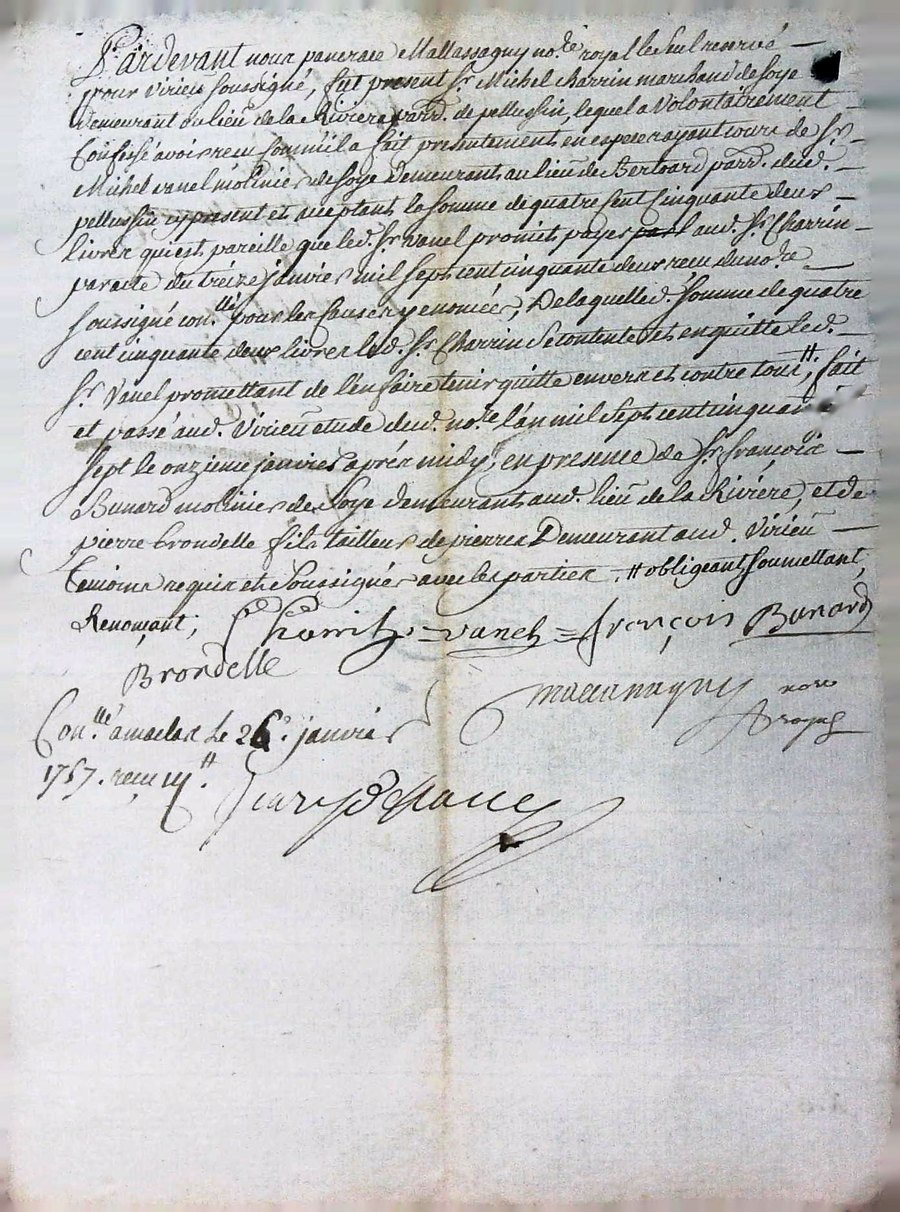 Pardevant nous pancrace Mallassagny no.re royal le seul reservé
pour virieu soussigné, fut present Sr. Michel charrin marchand de soye
demeurant au lieu de la Riviere parr. de pellussin, lequel a volontairement
Confessé avoir reçu comm'il a fait presentement en espece ayant cours de Sr.
Michel vanel molinier de soye demeurant au lieu de Bertoard parr. dud.
pellussin cy present et acceptant la somme de quatre cent cinquante deux
livres qu'est pareille que led. Sr. vanel promit payer aud. Sr. Charrin
par acte du treize janvier mil sept cent cinquante deux reçu du no.re
soussigné con.llé pour les causes y enoncées, De laquelle d. somme de quatre
cent cinquante deux livres led. Sr. Charrin se contente et en quitte led.
Sr. Vanel promettant de l'en faire tenir quitte envers et contre tous ++; fait
et passé aud. Virieu etude dud. no.re l'an mil sept cent cinquan
sept le onzieme janvier après midy, en presence de Sr. françois
Bunard molinier de soye demeurant aud. lieu de la Riviere, et de
pierre brondelle fils tailleur de pierres Demeurant aud. Virieu
temoins requis et soussignés avec les parties. ++ obligeant, soumettant,
Renonçant;
Charrin = vanel = françois Bunard
Brondelle
Mallassagny no.re
royal
Con.llé a maclas le 26e. janvier
1757. reçu